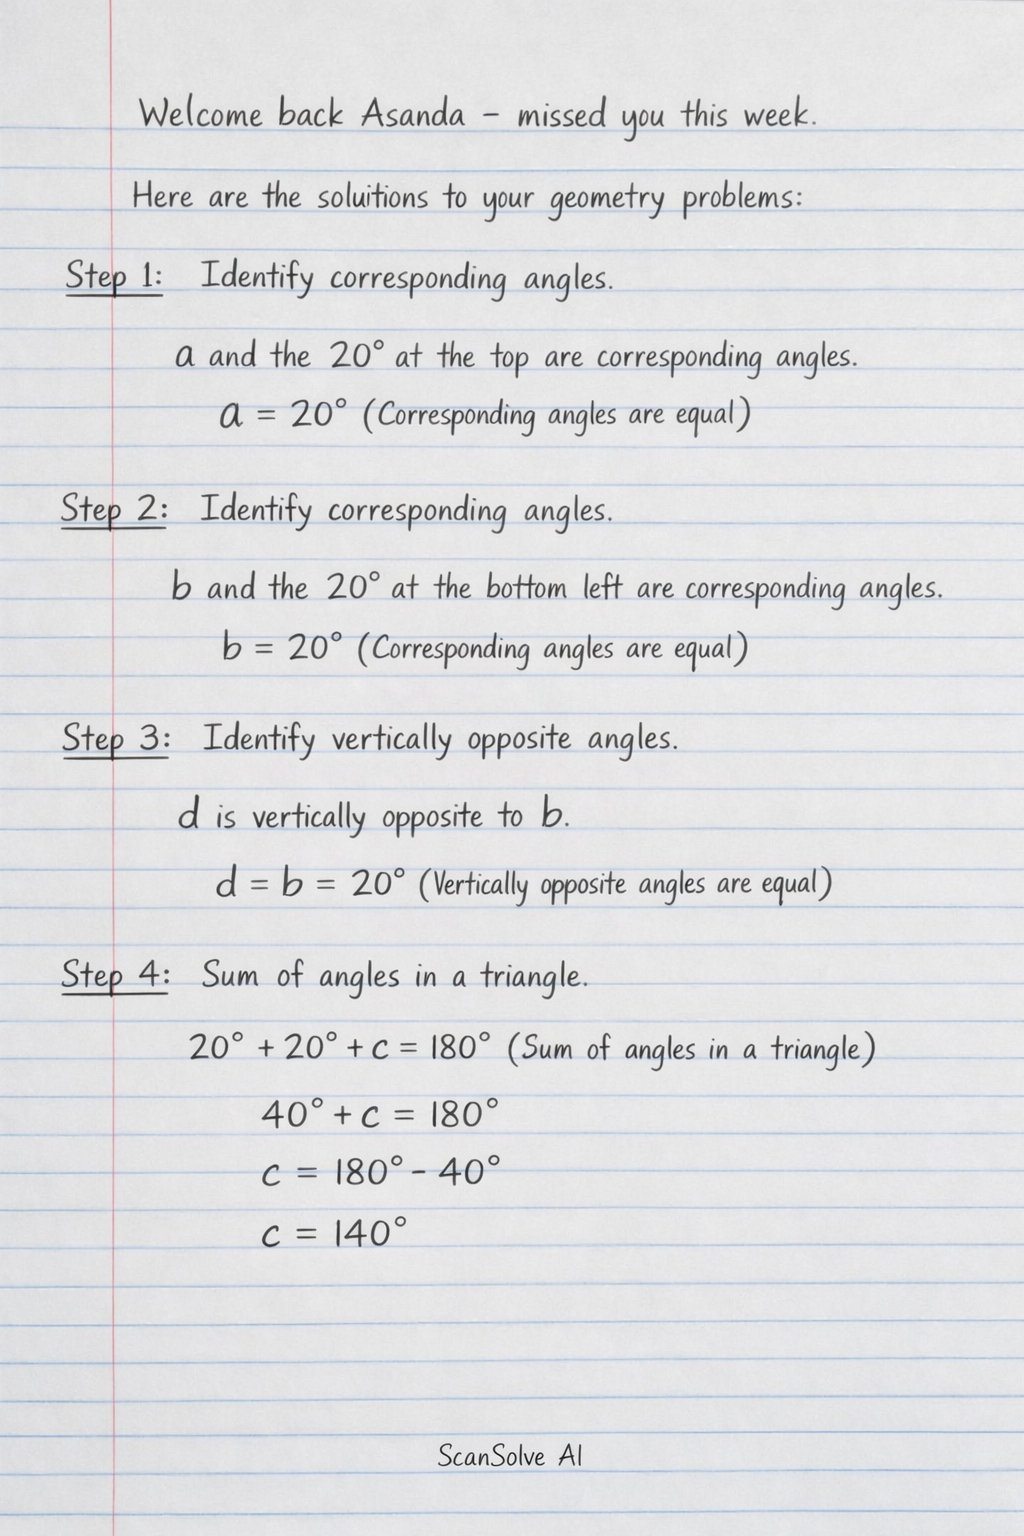 Welcome back Asanda – missed you this week.
Here are the soluitions to your geometry problems:
Step 1: Identify corresponding angles.
a and the 20° at the top are corresponding angles.
a = 20° (Corresponding angles are equal)
Step 2: Identify corresponding angles.
b and the 20° at the bottom left are corresponding angles.
b = 20° (Corresponding angles are equal)
Step 3: Identify vertically opposite angles.
d is vertically opposite to b.
d = b = 20° (Vertically opposite angles are equal)
Step 4: Sum of angles in a triangle.
20° + 20° + c = 180° (Sum of angles in a triangle)
40° + c = 180°
c = 180° - 40°
c = 140°
ScanSolve AI